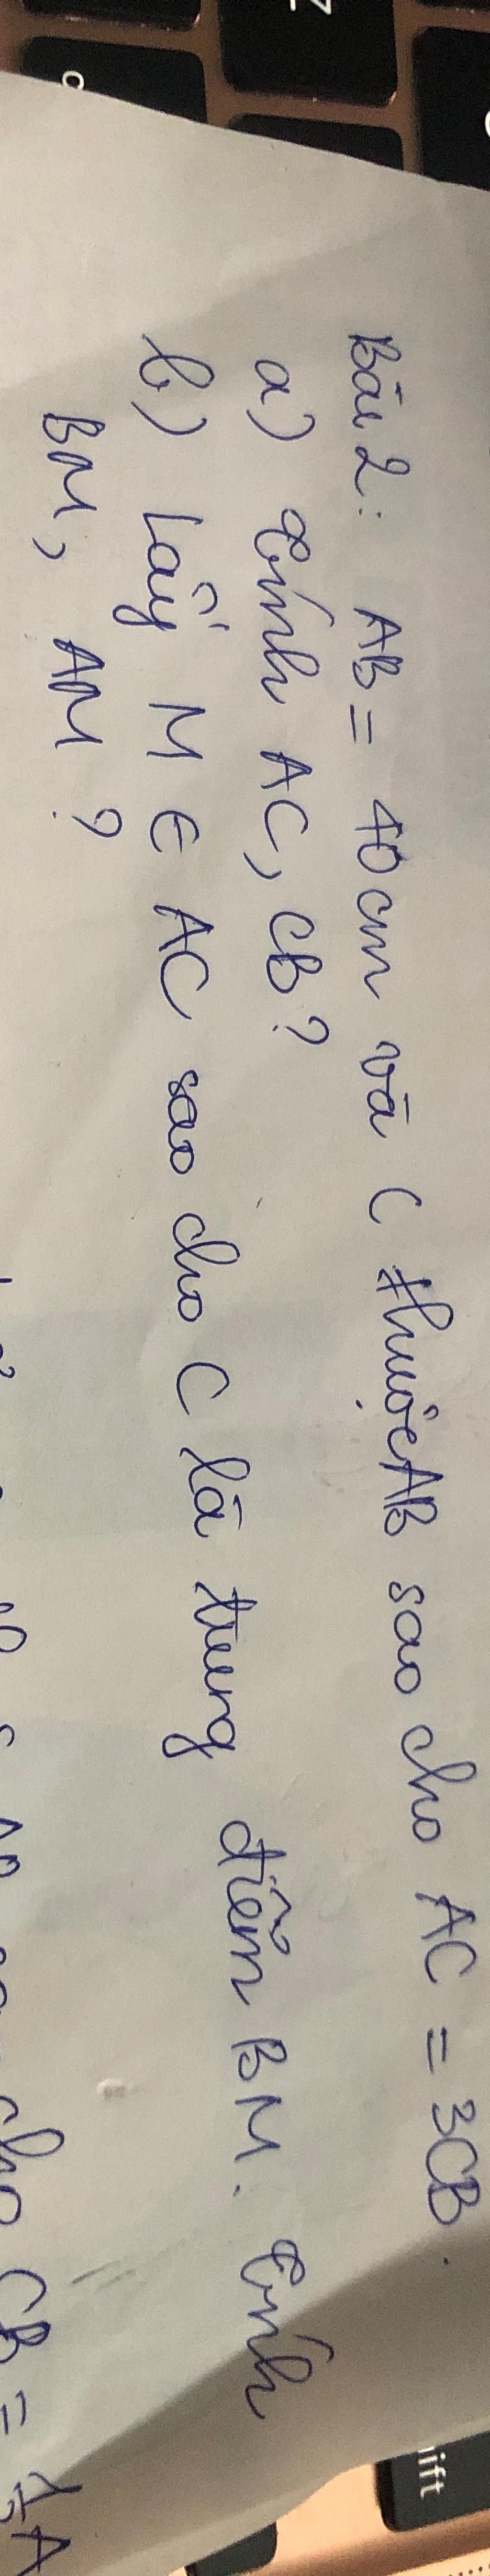 Bài 2: AB = 40 cm và C thuộc AB sao cho AC = 3CB.
a) Tính AC, CB?
b) Lấy M ∈ AC sao cho C là trung điểm BM. Tính
BM, AM?
cho CB =
ift